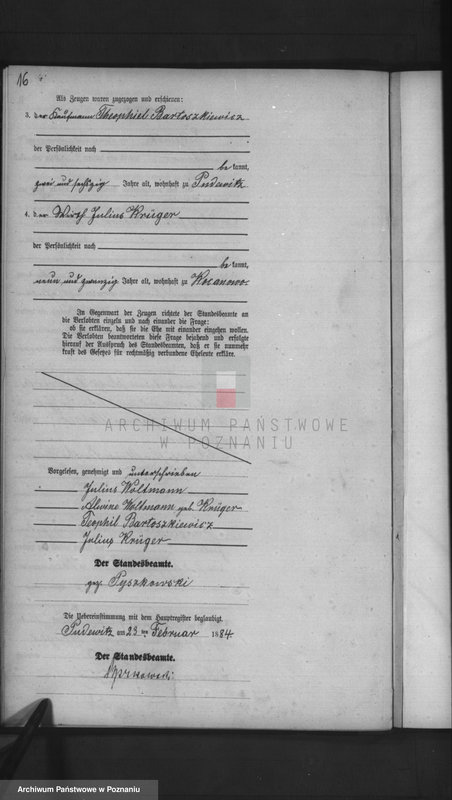 16
Als Zeugen waren zugezogen und erschienen:
3. der Kaufmann Theophiel Bartoszkiewicz
der Persönlichkeit nach
be kannt,
zwei und sechszig Jahre alt, wohnhaft zu Pudewitz
4. der Wirth Julius Krüger
der Persönlichkeit nach
be kannt,
neun und zwanzig Jahre alt, wohnhaft zu Kocanowo.
In Gegenwart der Zeugen richtete der Standesbeamte an
die Verlobten einzeln und nach einander die Frage:
ob sie erklären, daß sie die Ehe mit einander eingehen wollen.
Die Verlobten beantworteten diese Frage bejahend und erfolgte
hierauf der Ausspruch des Standesbeamten, daß er sie nunmehr
kraft des Gesetzes für rechtmäßig verbundene Eheleute erkläre.
ARCHIWUM PAŃSTWOWE
W POZNANIU
Vorgelesen, genehmigt und unterschrieben
Julius Woltmann
Alwine Woltmann geb. Krüger
Teophil Bartoszkiewicz
Julius Krüger
Der Standesbeamte.
gez. Pyszkowski
Die Uebereinstimmung mit dem Hauptregister beglaubigt.
Pudewitz am 23 ten Februar 1884
Der Standesbeamte.
Archiwum Państwowe w Poznaniu